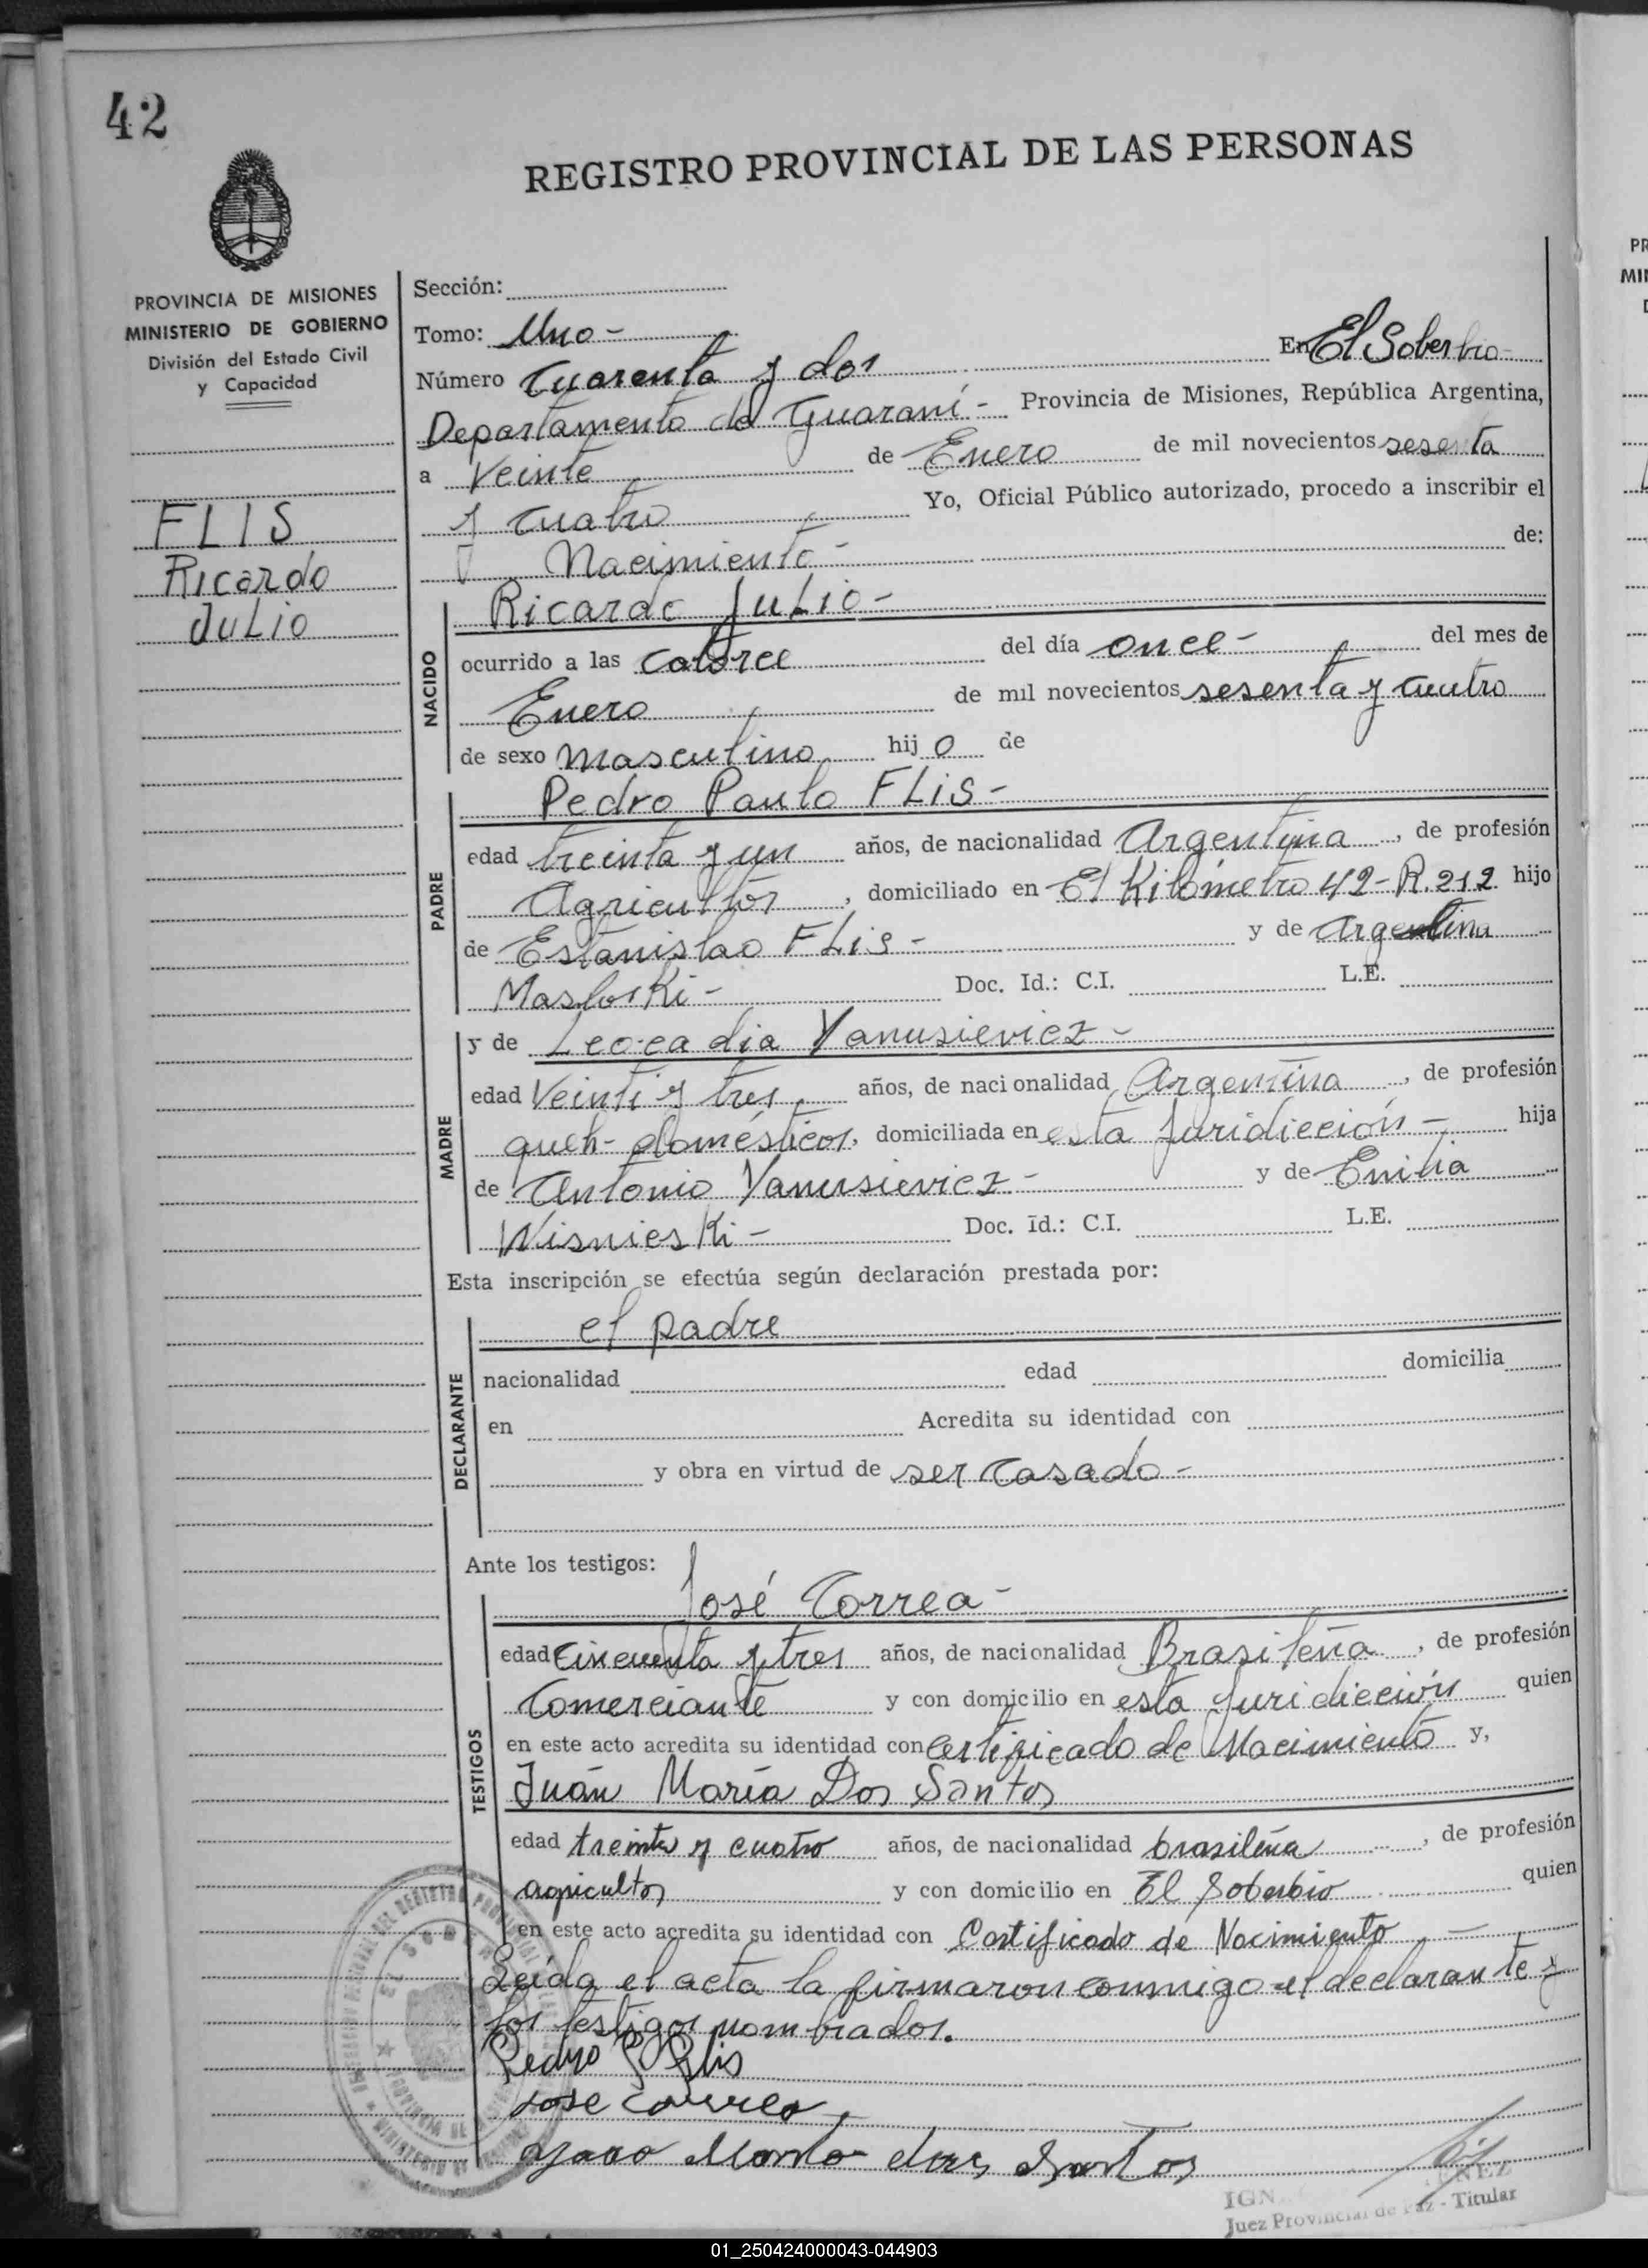 42
REGISTRO PROVINCIAL DE LAS PERSONAS
PROVINCIA DE MISIONES
MINISTERIO DE GOBIERNO
División del Estado Civil
y Capacidad
FLIS
Ricardo
Julio
Sección:
Tomo: Uno-
Número Cuarenta y dos En El Soberbio
Departamento de Guaraní - Provincia de Misiones, República Argentina,
a Veinte de Enero de mil novecientos sesenta
y cuatro Yo, Oficial Público autorizado, procedo a inscribir el
Nacimiento - de:
NACIDO
Ricardo Julio -
ocurrido a las catorce del día once - del mes de
Enero de mil novecientos sesenta y cuatro
de sexo masculino hijo de
PADRE
Pedro Paulo FLIS -
edad treinta y un años, de nacionalidad Argentina, de profesión
Agricultor, domiciliado en El Kilómetro 42-R.212 hijo
de Estanislao FLis - y de Argentina
Masloski - Doc. Id.: C.I. L.E.
MADRE
y de Leocadia Yanusieviez -
edad Veinti y tres años, de nacionalidad Argentina, de profesión
queh- domésticos, domiciliada en esta juridicción - hija
de Antonio Yanusieviez - y de Emilia
Wisnieski - Doc. Id.: C.I. L.E.
Esta inscripción se efectúa según declaración prestada por:
DECLARANTE
el padre
nacionalidad edad domicilia
en Acredita su identidad con
y obra en virtud de ser casado -
Ante los testigos:
TESTIGOS
José Correa -
edad cincuenta y tres años, de nacionalidad Brasileña, de profesión
Comerciante y con domicilio en esta juridicción quien
en este acto acredita su identidad con Certificado de Nacimiento y,
Juán María Dos Santos
edad treinta y cuatro años, de nacionalidad brasileña, de profesión
agricultor y con domicilio en El Soberbio quien
en este acto acredita su identidad con Certificado de Nacimiento -
Leída el acta la firmaron conmigo el declarante y
los testigos nombrados.
Pedro P Flis
Jose Correa
dos Santos
IGN
Juez Provincial de Paz - Titular
01_250424000043-044903